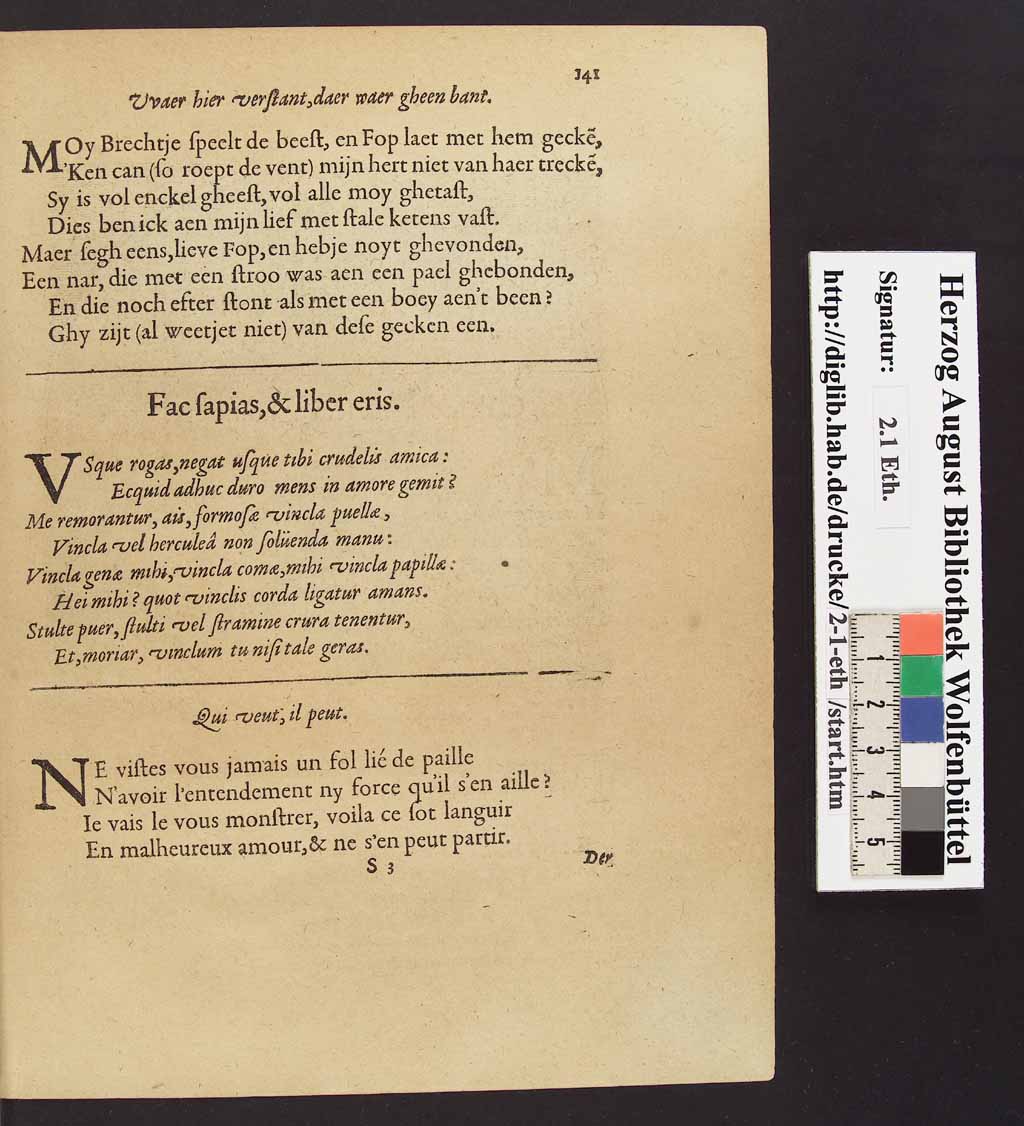 141
Uvaer hier verſtant, daer waer gheen bant.
MOy Brechtje ſpeelt de beeſt, en Fop laet met hem geckẽ,
'Ken can (ſo roept de vent) mijn hert niet van haer treckẽ,
Sy is vol enckel gheeſt, vol alle moy ghetaſt,
Dies ben ick aen mijn lief met ſtale ketens vaſt.
Maer ſegh eens, lieve Fop, en hebje noyt ghevonden,
Een nar, die met een ſtroo was aen een pael ghebonden,
En die noch efter ſtont als met een boey aen't been?
Ghy zijt (al weetjet niet) van deſe gecken een.
Fac ſapias, & liber eris.
VSque rogas, negat uſque tibi crudelis amica:
Ecquid adhuc duro mens in amore gemit?
Me remorantur, ais, formoſæ vincla puellæ,
Vincla vel herculeâ non ſolüenda manu:
Vincla genæ mihi, vincla comæ, mihi vincla papillæ:
Hei mihi? quot vinclis corda ligatur amans.
Stulte puer, ſtulti vel ſtramine crura tenentur,
Et, moriar, vinclum tu niſi tale geras.
Qui veut, il peut.
NE viſtes vous jamais un fol lié de paille
N'avoir l'entendement ny force qu'il s'en aille?
Ie vais le vous monſtrer, voila ce ſot languir
En malheureux amour, & ne s'en peut partir.
S 3
Der
Herzog August Bibliothek Wolfenbüttel
Signatur: 2.1 Eth.
http://diglib.hab.de/drucke/2-1-eth/start.htm
1 2 3 4 5